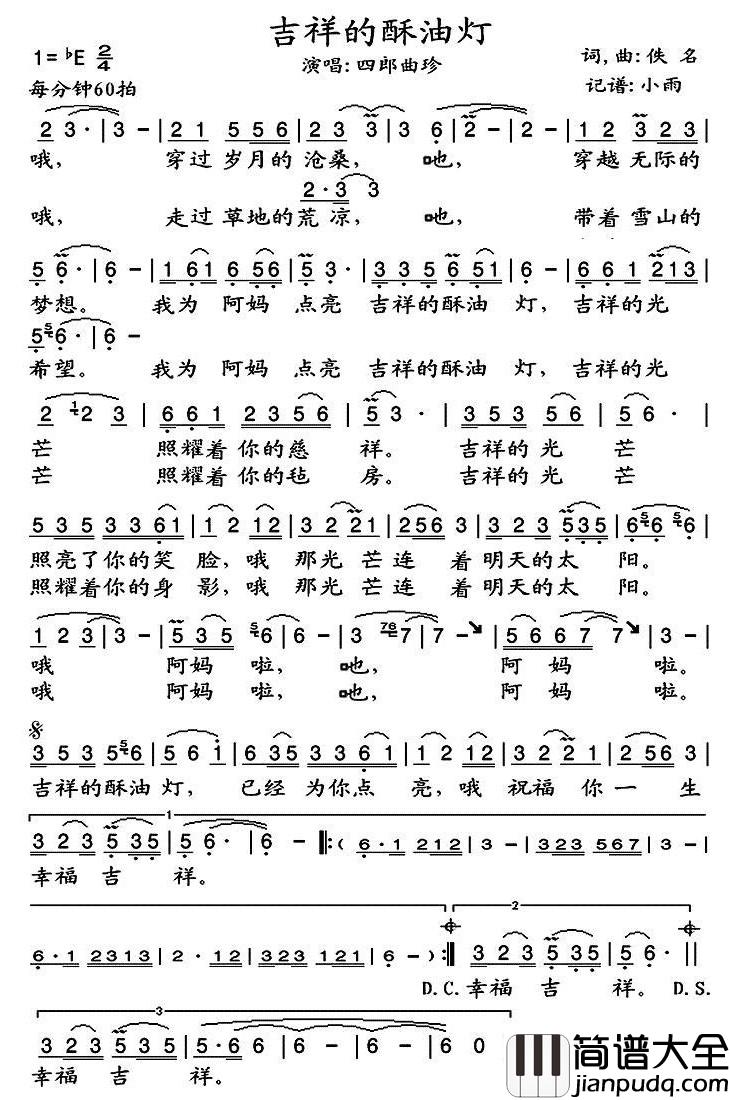 吉祥的酥油灯
1=♭E 2/4
演唱:四郎曲珍
词,曲:佚 名
每分钟60拍
记谱:小雨
2 3·|3 -|2 1 5 5 5|2 3 3|3 6|2 -|2 -|1 2 3 2 3|
哦, 穿过 岁月的 沧桑, 吔, 穿越 无际的
2·3 3
哦, 走过 草地的 荒凉, 吔, 带着 雪山的
5 6·|6 -|1 6 1 6 5 6|5 3·|3 3 5 6 5 1|6 -|6 6 1 2 1 3|
梦想。 我为 阿妈 点亮 吉祥的酥油 灯, 吉祥的光
5 5 6·|6 -
希望。 我为 阿妈 点亮 吉祥的酥油 灯, 吉祥的光
2 1 2 3|6 6 1 2 3 5 6|5 3·|3 5 3 5 6|5 6·|
芒 照耀着 你的慈 祥。 吉祥的 光 芒
芒 照耀着 你的毡 房。 吉祥的 光 芒
5 3 5 3 3 6 1|1 2 1 2|3 2 2 1|2 5 6 3|3 2 3 5 3 5|6 5 6 5 6|
照亮了你的笑 脸,哦 那光 芒连 着 明天的太 阳。
照耀着你的身 影,哦 那光 芒连 着 明天的太 阳。
1 2 3|3 -|5 3 5 5 6|6 -|3 7 6 7|7 -|5 6 6 7 7|3 -|
哦 阿妈 啦, 吔, 阿 妈 啦。
哦 阿妈 啦, 吔, 阿 妈 啦。
3 5 3 5 5 6|5 6 1|6 3 5 3 3 6 1|1 2 1 2|3 2 2 1|2 5 6 3|
吉祥的酥油 灯, 已经 为你点 亮,哦 祝福 你一 生
1
3 2 3 5 3 5|5 6·|6 -‖:(6·1 2 1 2|3 -|3 2 3 5 6 7|3 -|
幸福 吉 祥。
2
6·1 2 3 1 3|2·1 2|3 2 3 1 2 1|6 -):‖3 2 3 5 3 5|5 6·‖
D.C.幸福 吉 祥。D.S.
3
3 2 3 5 3 5|5·6 6|6 -|6 -|6 0‖
幸福 吉 祥。
简谱大全
jianpudq.com